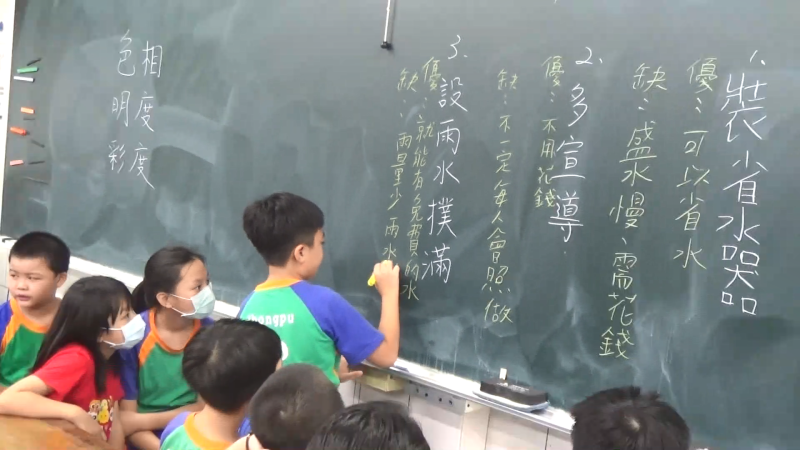 1. 裝省水器
優：可以省水
缺：盛水慢、需花錢
2. 多宣導
優：不用花錢
缺：不一定每人會照做
3. 設雨水撲滿
優：就能有免費的水
缺：雨量少雨水
色相
明度
彩度